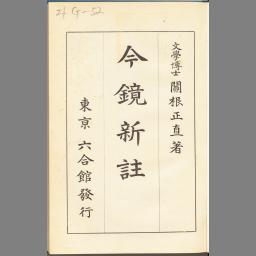 文學博士 關根正直著
今鏡新註
東京 六合館發行